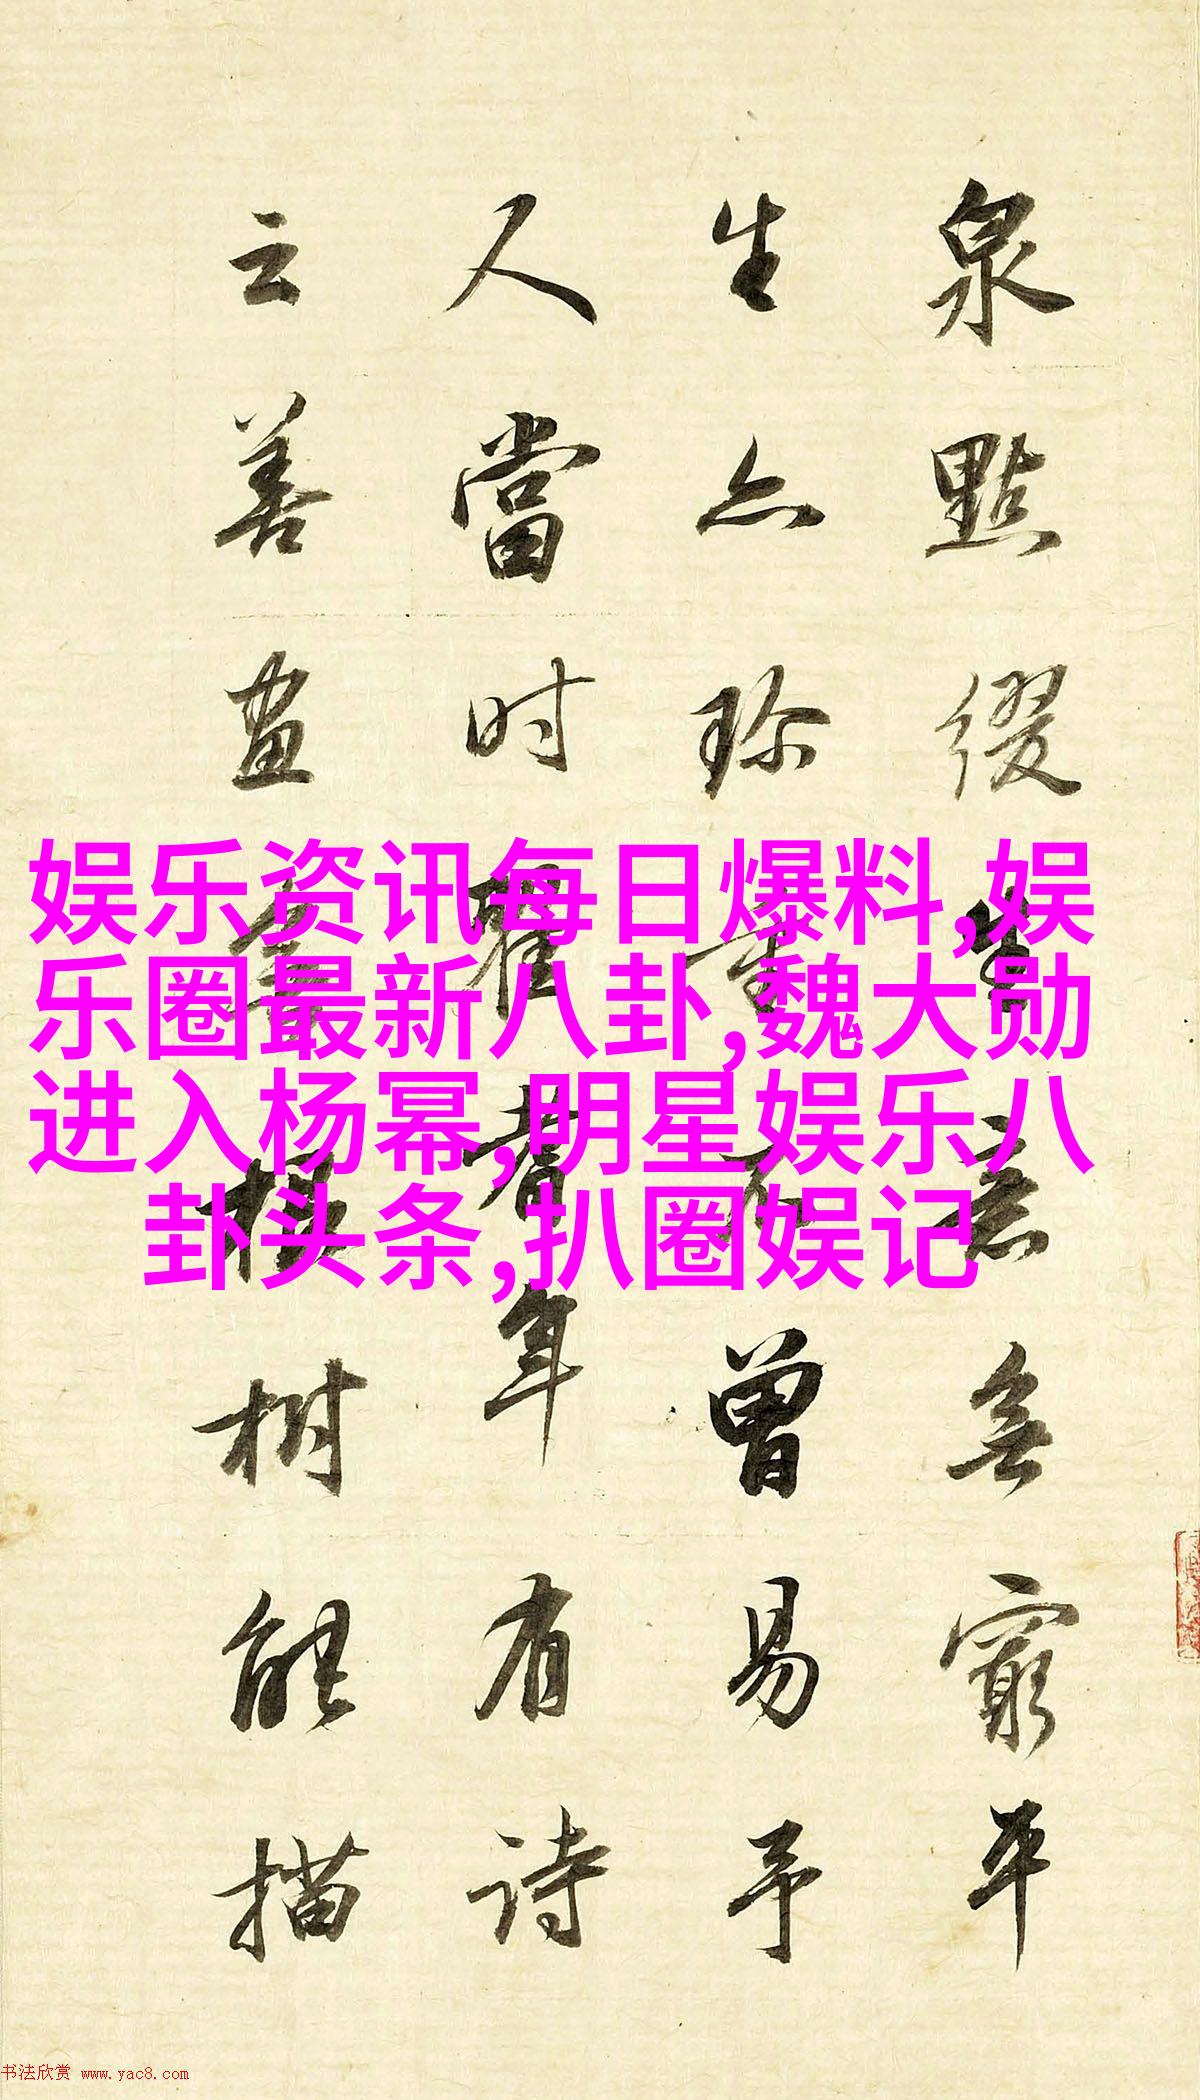 娱乐资讯每日爆料,娱
乐圈最新八卦,魏大勋
进入杨幂,明星娱乐八
卦头条,扒圈娱记
泉點缀生意無窮平
生亦珍重不曾易予
人當时耆年有诗
云善畫樹能描
书法欣赏 www.yac8.com